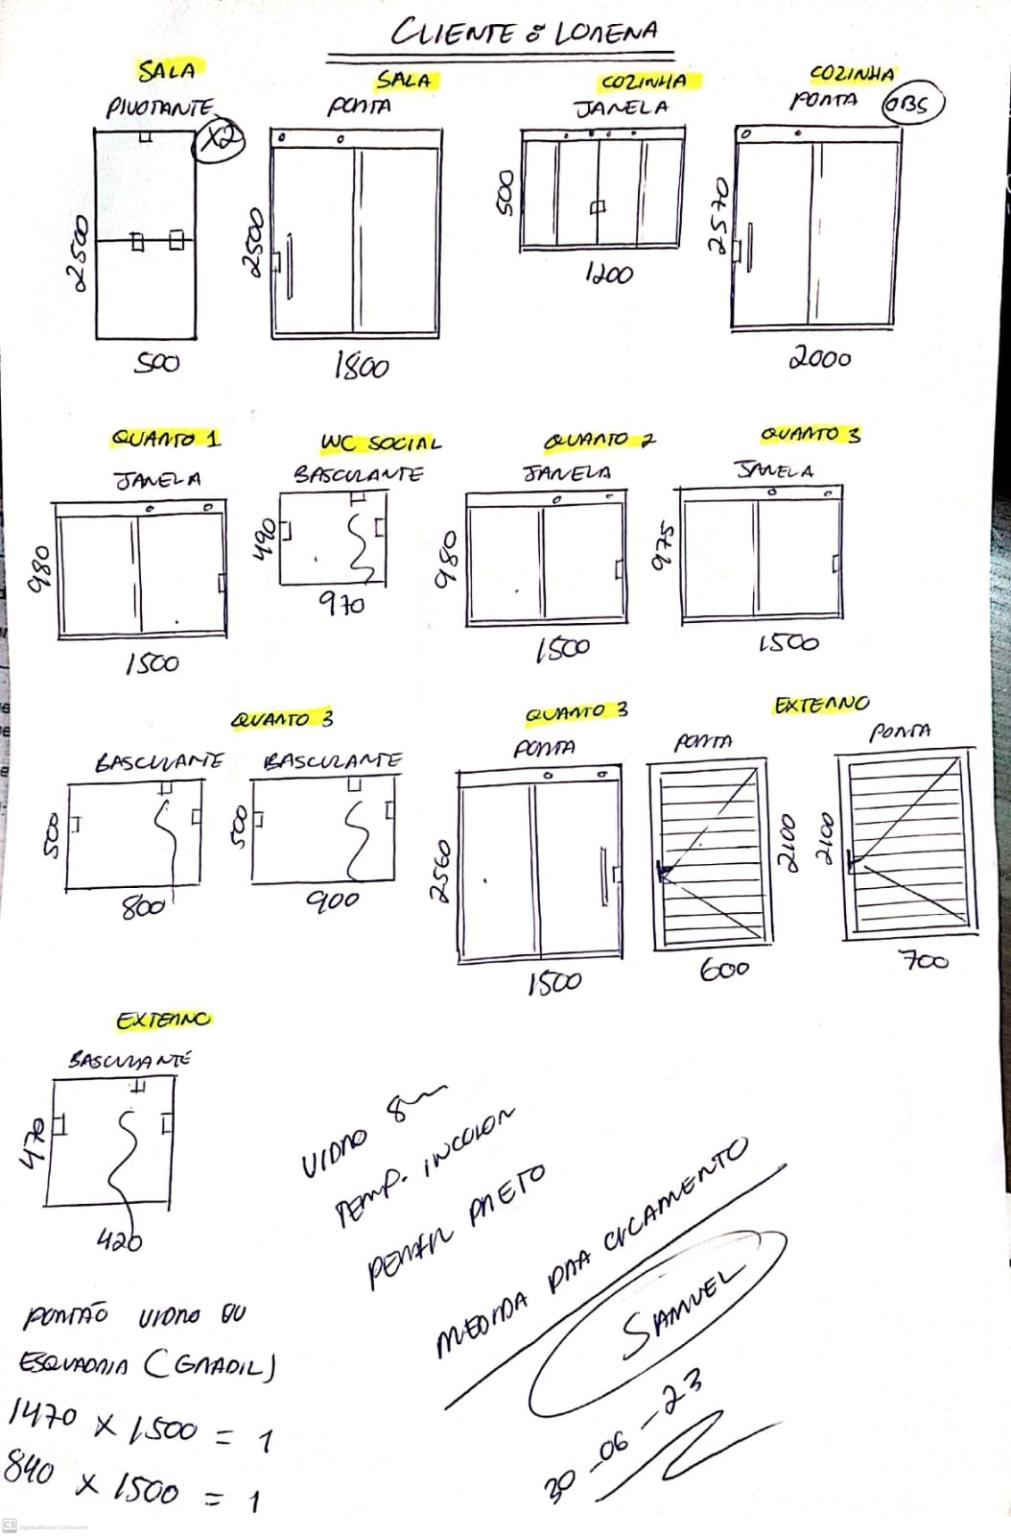 CLIENTE: LORENA
SALA
PIVOTANTE
X2
2500
500
SALA
PORTA
2500
1800
COZINHA
JANELA
500
1200
COZINHA
PORTA
OBS
2570
2000
QUARTO 1
JANELA
980
1500
WC SOCIAL
BASCULANTE
490
970
QUARTO 2
JANELA
980
1500
QUARTO 3
JANELA
975
1500
QUARTO 3
BASCULANTE
500
800
BASCULANTE
500
900
QUARTO 3
PORTA
2560
1500
EXTERNO
PORTA
2100
600
PORTA
2100
700
EXTERNO
BASCULANTE
470
420
VIDRO 8mm
TEMP. INCOLOR
PERFIL PRETO
MEDIDA PRA ORÇAMENTO
SAMUEL
30-06-23
PORTÃO VIDRO OU
ESQUADRIA (GRADIL)
1470 X 1500 = 1
840 X 1500 = 1
CS Digitalizado com CamScanner